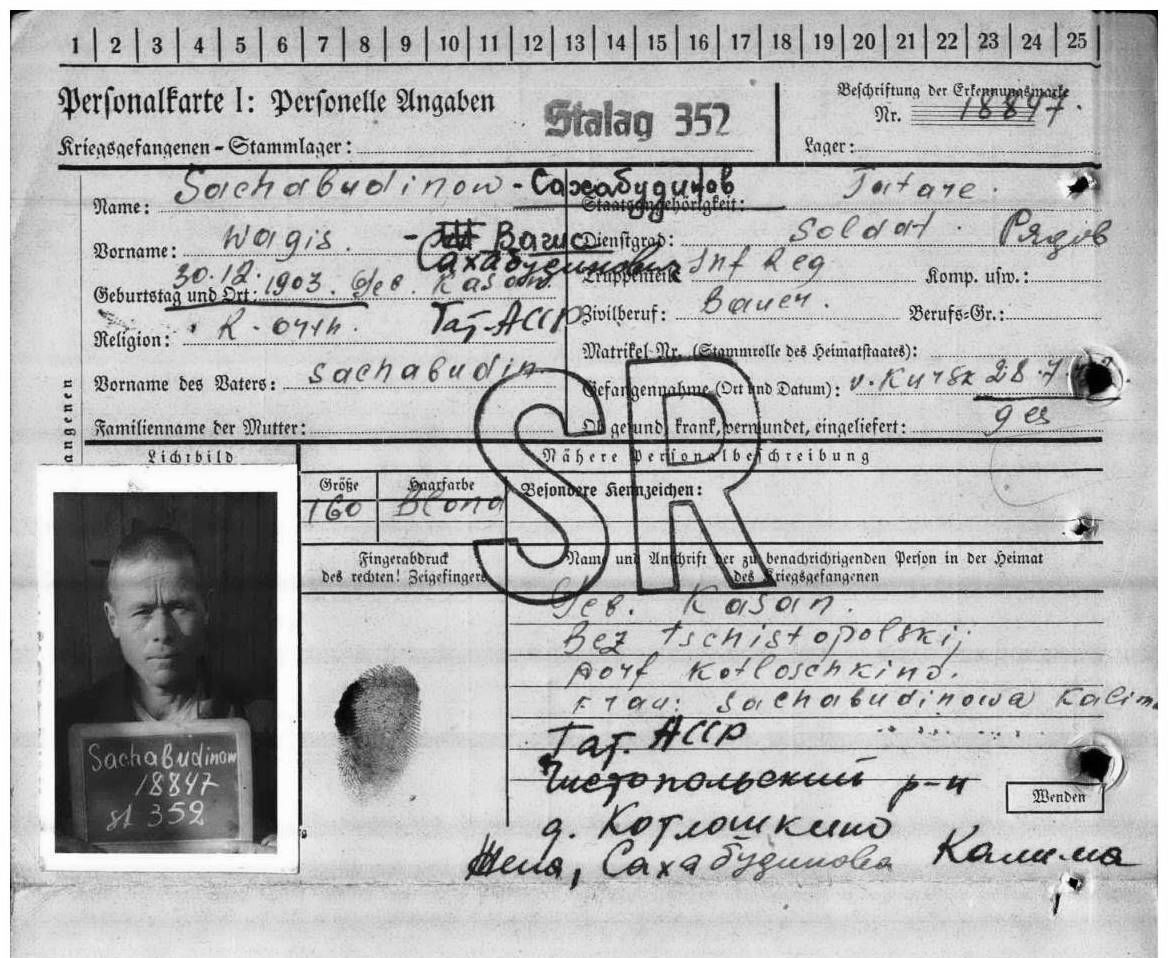 1 2 3 4 5 6 7 8 9 10 11 12 13 14 15 16 17 18 19 20 21 22 23 24 25
Personalkarte I: Personelle Angaben
Stalag 352
Beschriftung der Erkennungsmarke
Nr. 18847.
Kriegsgefangenen-Stammlager:
Lager:
Name: Sachabudinow - Сахабудинов
Staatsangehörigkeit: Tatare.
Vorname: Wagis. - Вагис
Сахабудинович
Dienstgrad: Soldat. Рядов
Truppenteil: Inf Reg Komp. usw.:
Geburtstag und Ort: 30.12.1903. Geb. Kasan.
Тат-АССР
Zivilberuf: Bauer. Berufs-Gr.:
Religion:
Matrikel-Nr. (Stammrolle des Heimatstaates):
Vorname des Vaters: Sachabudin
Gefangennahme (Ort und Datum): v. Kursk 28.7.
Familienname der Mutter:
Ob gesund, krank, verwundet, eingeliefert: ges
angenen
SR
Lichtbild
Nähere Personalbeschreibung
Größe Haarfarbe Besondere Kennzeichen:
160 Blond
Fingerabdruck
des rechten! Zeigefingers
Name und Anschrift der zu benachrichtigenden Person in der Heimat
des Kriegsgefangenen
Geb. Kasan.
Bez Tschistopolskij
Dorf Kotloschkino.
Frau: Sachabudinowa Kalima
Тат. АССР
Чистопольский р-н
д. Котлошкино
Жена, Сахабудинова Калима
Wenden
Sachabudinow
18847
st 352